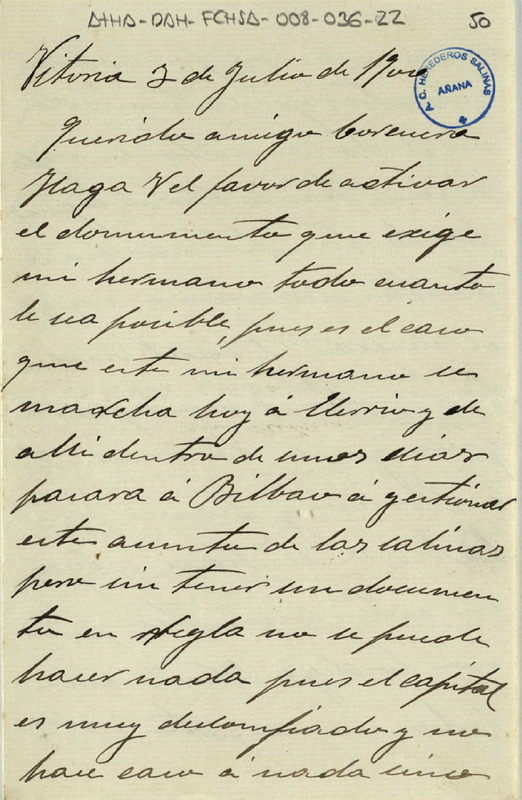 ATHA-DAH-FCHSA-008-036-22 50
A. C. HEREDEROS SALINAS
AÑANA
Vitoria 2 de Julio de 1900
Querido amigo
Haga V el favor de activar
el documento que exige
mi hermano todo cuanto
le sea posible, pues es el caso
que este mi hermano se
marcha hoy á Elorrio y de
alli dentro de unos dias
pasara á Bilbao á gestionar
este asunto de las salinas
pero sin tener un documen
to en regla no se puede
hacer nada pues el capital
es muy desconfiado y no
hace caso á nada sino